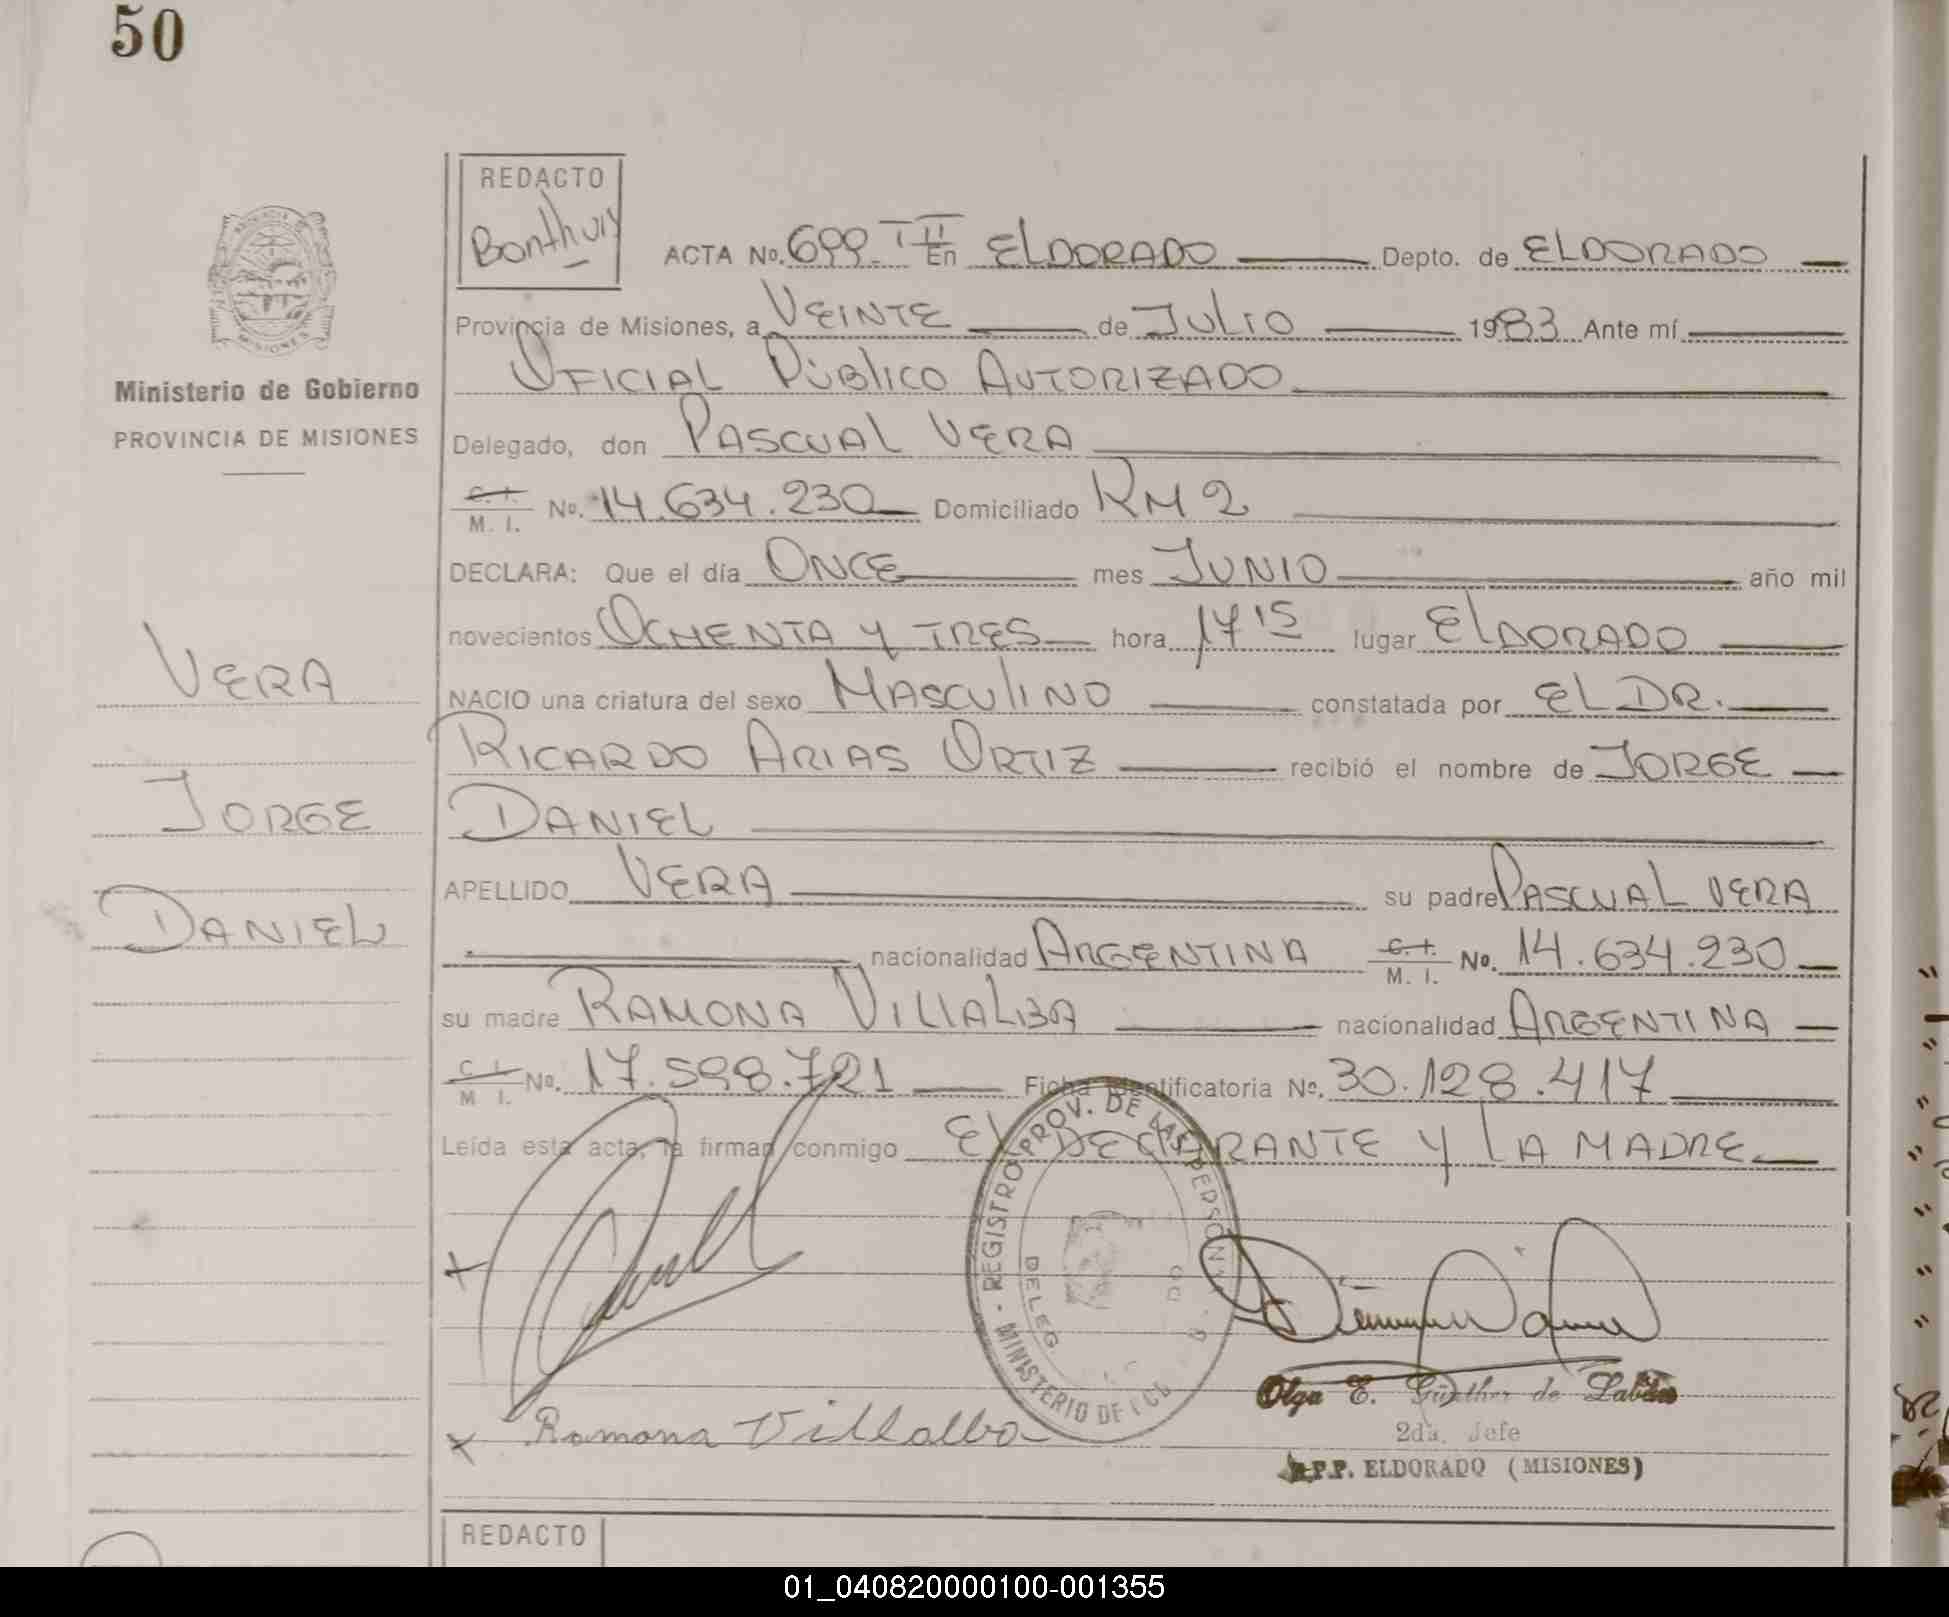 50
REDACTO
Bonthuis
ACTA No. 699 - III En ELDORADO Depto. de ELDORADO
Provincia de Misiones, a VEINTE de JULIO 1983 Ante mí
OFICIAL PÚBLICO AUTORIZADO
Ministerio de Gobierno
PROVINCIA DE MISIONES
Delegado, don PASCUAL VERA
C. I. M. I. No. 14.634.230 Domiciliado KM 2
DECLARA: Que el día ONCE mes JUNIO año mil
novecientos OCHENTA Y TRES hora 17 15 lugar ELDORADO
NACIO una criatura del sexo MASCULINO constatada por EL DR.
RICARDO ARIAS ORTIZ recibió el nombre de JORGE
DANIEL
VERA
JORGE
DANIEL
APELLIDO VERA su padre PASCUAL VERA
nacionalidad ARGENTINA C. I. M. I. No. 14.634.230
su madre RAMONA VILLALBA nacionalidad ARGENTINA
C. I. M. I. No. 17.598.721 Ficha Identificatoria No. 30.128.417
Leída esta acta, la firman conmigo EL DECLARANTE Y LA MADRE
REGISTRO PROV. DE LAS PERSONAS
MINISTERIO DE
DELEG.
Ramona Villalba
Olga E. Günther de
2da. Jefe
R.P.P. ELDORADO (MISIONES)
REDACTO
01_040820000100-001355